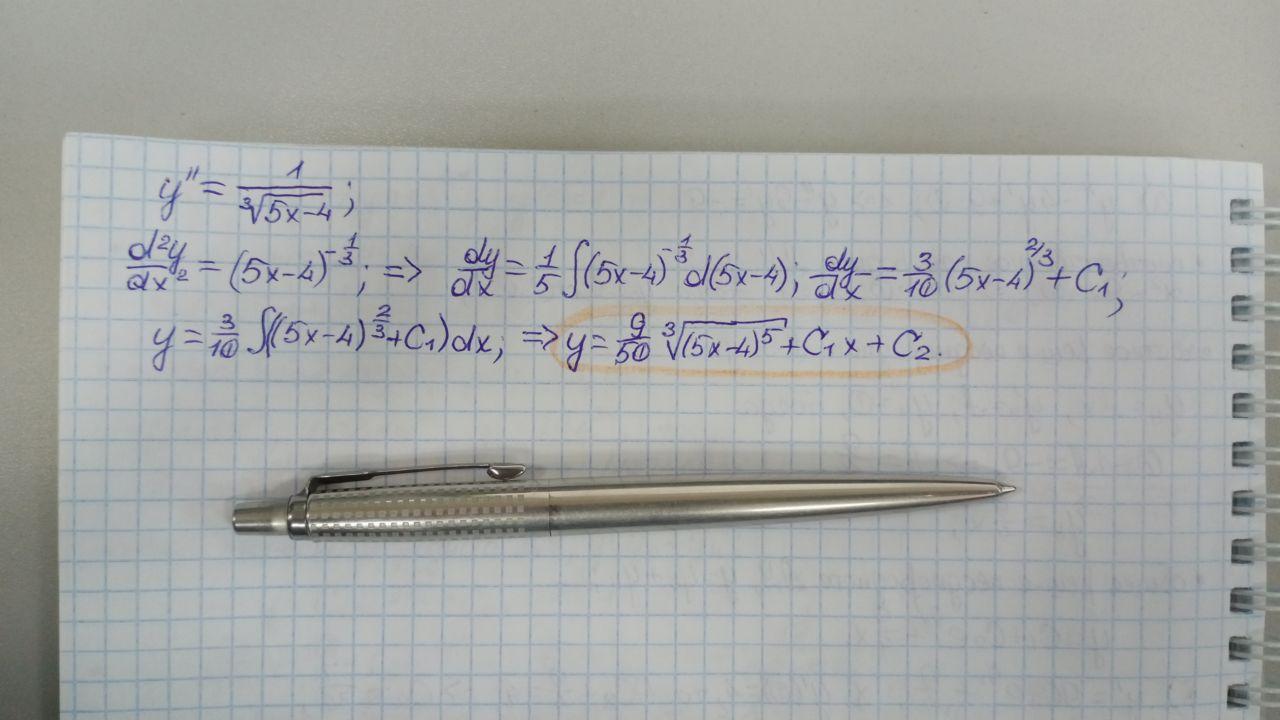 y'' = 1/∛(5x-4);
d²y/dx² = (5x-4)^(-1/3); => dy/dx = 1/5 ∫(5x-4)^(-1/3) d(5x-4); dy/dx = 3/10 (5x-4)^(2/3) + C₁;
y = 3/10 ∫((5x-4)^(2/3) + C₁) dx; => y = 9/50 ∛((5x-4)^5) + C₁x + C₂.